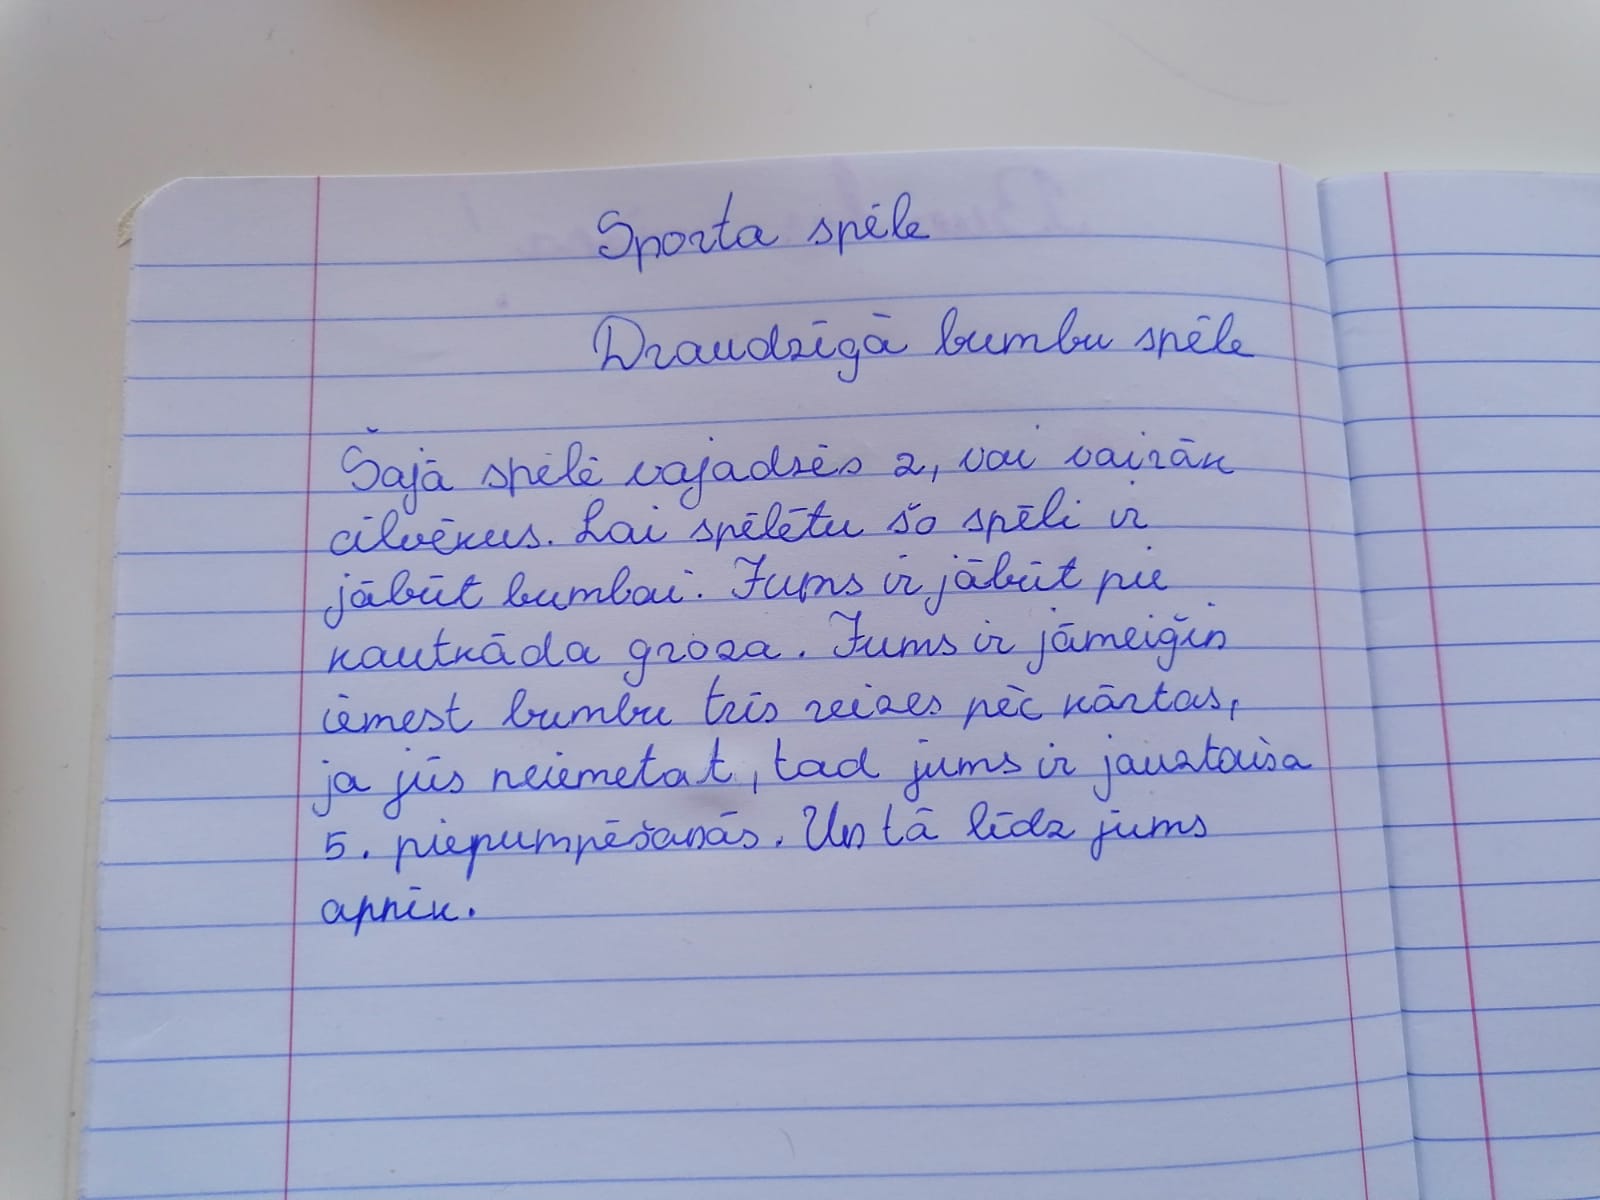 Sporta spēle
Draudzīgā bumbu spēle
Šajā spēlē vajadzēs 2, vai vairāk
cilvēkus. Lai spēlētu šo spēli ir
jābūt bumbai. Jums ir jābūt pie
kautkāda groza. Jums ir jāmeiģin
iemest bumbu trīs reizes pēc kārtas,
ja jūs neiemetat, tad jums ir jauztaisa
5. piepumpēšanās. Un tā līdz jums
apnīk.